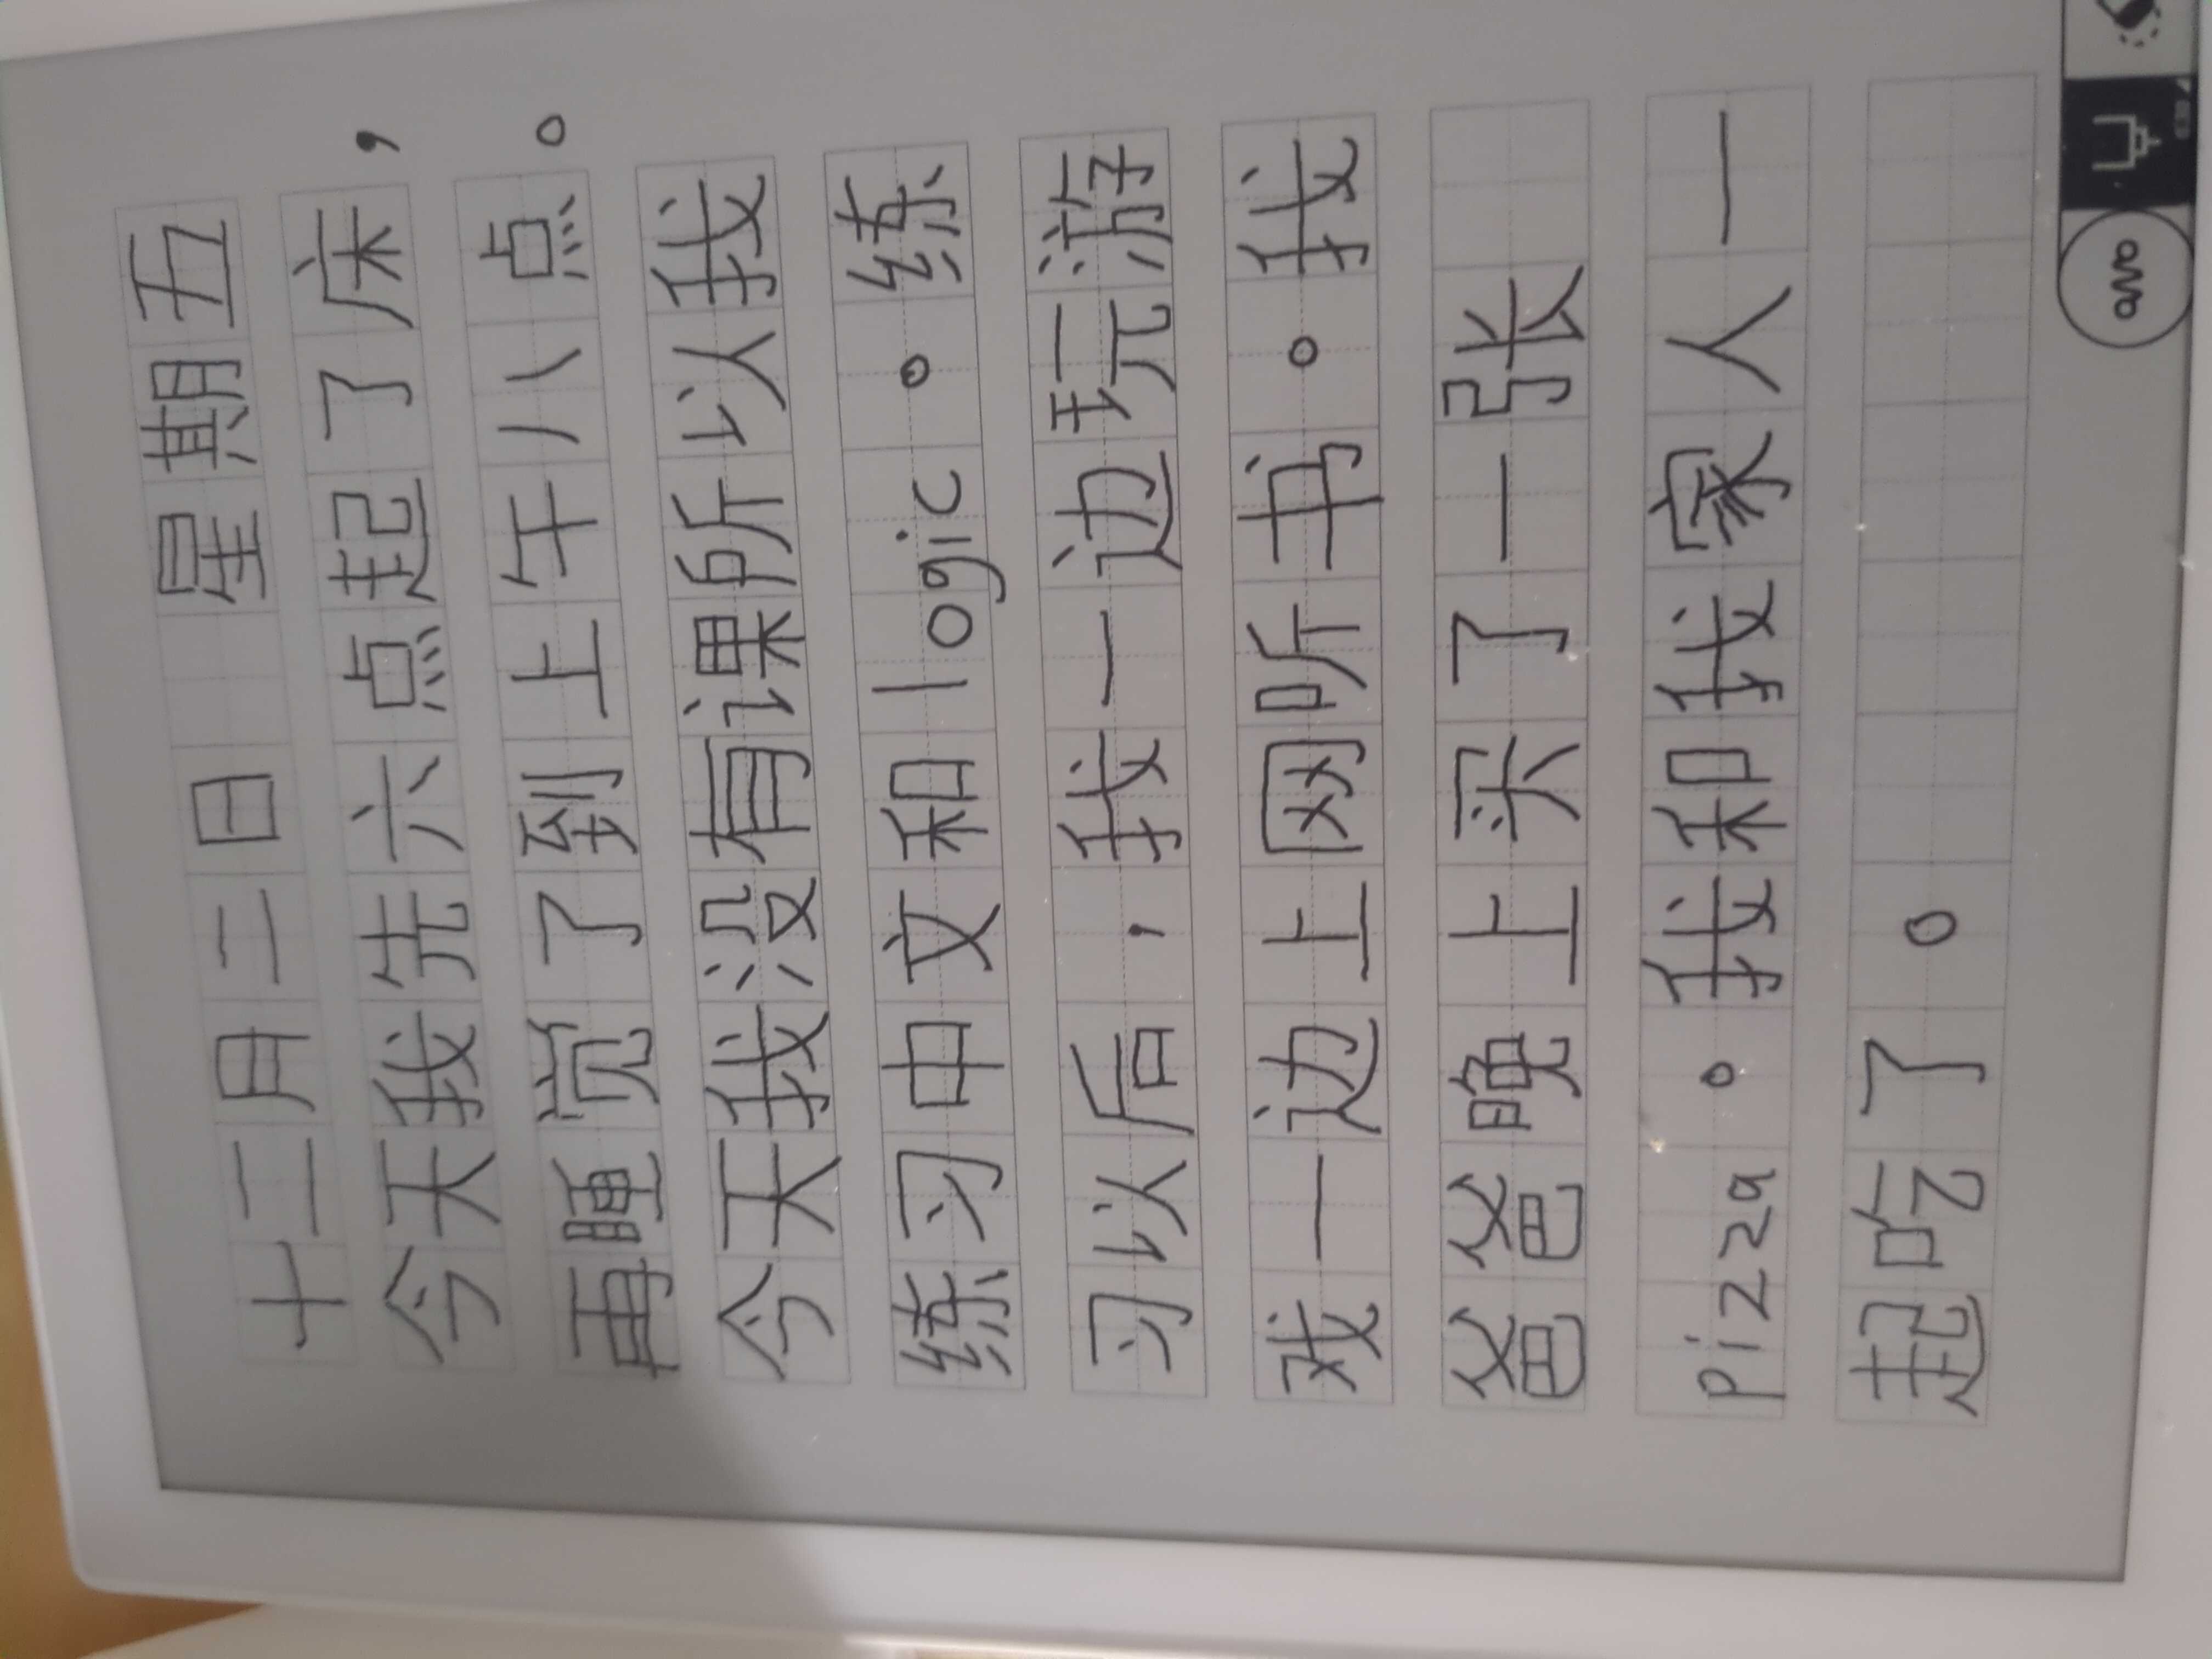 十二月二日 星期五
今天我先六点起了床，
再睡觉了到上午八点。
今天我没有课所以我
练习中文和logic。练
习以后，我一边玩游
戏一边上网听书。我
爸爸晚上买了一张
pizza。我和我家人一
起吃了。